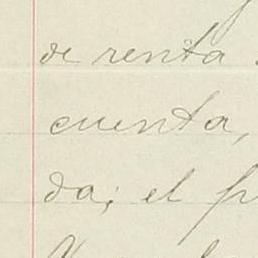 de renta
cuenta,
da; el